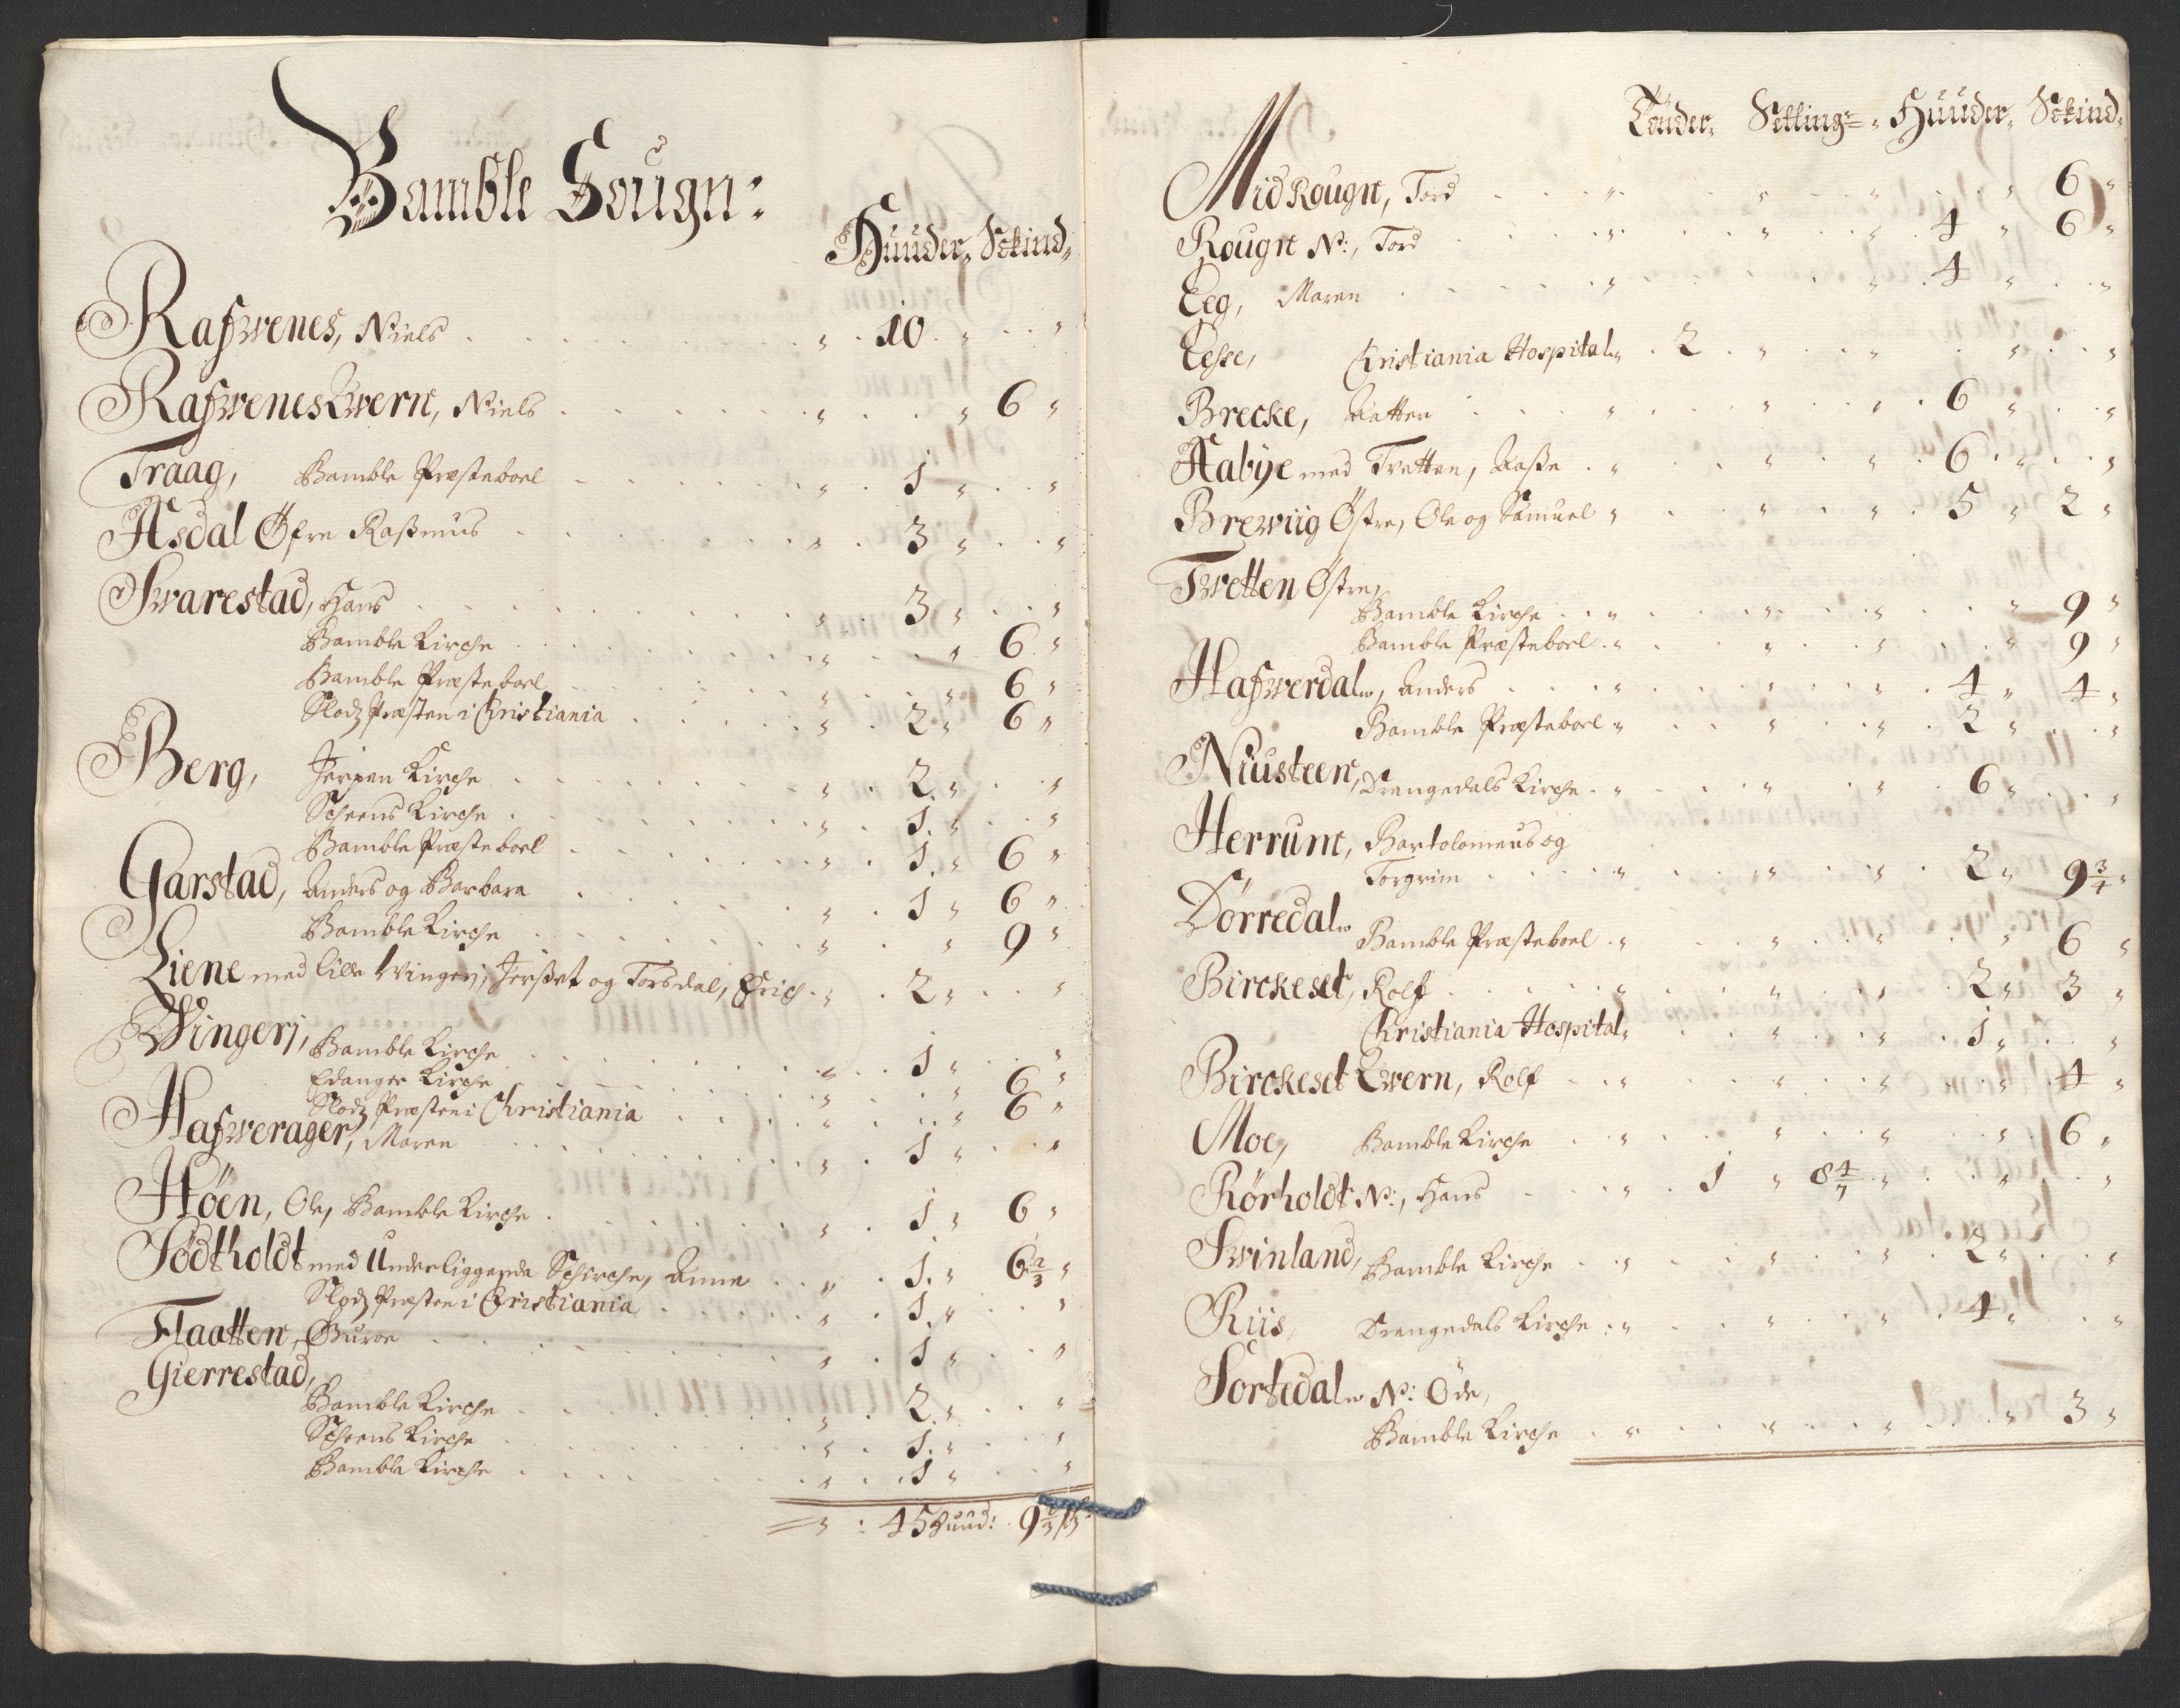 Bamble Sougn:
Huuder, Sckind,
Rafwenes, Niels . . . „ . 10 . „ . . „
Rafwenes Qwern, Niels . . . „ . . . „ 6 „
Traag, Bamble Præsteboel . . . „ . 1 „ . . „
Asdal Øfre Rasmus . . . „ . 3 „ . . „
Swarestad, Hans . . . „ . 3 „ . . „
Bamble Kirche . . . „ . . . „ 6 „
Bamble Præsteboel . . . „ . . . „ 6 „
Slodz Præsten i Christiania . . . „ . 2 „ 6 „
Berg, Jerpen Kirche . . . „ . 2. „ . . „
Scheens Kirche . . . „ . 1. „ . . „
Bamble Præsteboel . . . „ . 1. „ 6 „
Garstad, Anders og Barbara . . . „ . 1 „ 6 „
Bamble Kirche . . . „ . . „ 9 „
Liene med lille Wingerj, Jersset og Torsdal, Erich . „ . 2 „ . . „
Wingerj, Bamble Kirche . . . „ . 1 „ . . „
Edanger Kirche . . . „ . . „ 6 „
Slodz Præsten i Christiania . . . „ . . „ 6 „
Hafwerager, Maren . . . „ . 1 „ . . „
Höen, Ole, Bamble Kirche . . . „ . 1 „ 6 „
Födtholdt med Underliggende Schirche, Anne . . „ . 1. „ 6 2/3 „
Slodz Præsten i Christiania . . . „ . 1. „ . . „
Flaatten, Guroe . . . „ . 1 „ . . „
Gierrestad,
Bamble Kirche . . . „ . 2. „ . . „
Scheens Kirche . . . „ . 1. „ . . „
Bamble Kirche . . . „ . 1 „ . . „
„ : 45 Huud: 9 2/3 ß
Tönder, Setting: „ Huuder, Sckind,
Mid Rougn, Tord . . . „ . . „ . . „ . . „ 6 „
Rougn N:, Tord . . . „ . . „ . . „ . 4 „ 6 „
Eeg, Maren . . . „ . . . „ . 4 „ . . „
Eesse, Christiania Hospital „ . 2 . „ . . „ . . „ . . „
Brecke, Aatten . . . „ . . „ . . „ . 6 „ . . „
Aabye med Tvetten, Aasse . „ . . „ . . „ . 6 „ . . „
Brewiig Östre, Ole og Samuel „ . . „ . . „ . 5 „ 2 „
Twetten Östre,
Bamble Kirche . . „ . . „ . . „ . . „ 9 „
Bamble Præsteboel . „ . . „ . . „ . . „ 9 „
Hafwerdal „, Anders . . . „ . . „ . . „ . 4 „ 4 „
Bamble Præsteboel „ . . „ . . „ . 2 „ . . „
Niusteen, Drangedals Kirche . „ . . „ . . „ . 6 „ . . „
Herrum, Bartolomeus og
Torgrim . . . „ . . „ . . „ . 2 „ 9 3/4 „
Dörredal „ Bamble Præsteboel . „ . . „ . . „ . . „ 6 „
Birckeset, Rolf . . . „ . . „ . . „ . 2 „ 3 „
Christiania Hospital „ . . „ . . „ . 1 „ . . „
Birckeset Qwern, Rolf . . „ . . „ . . „ . . „ 4 „
Moe, Bamble Kirche . . „ . . „ . . „ . . „ 6 „
Rörholdt N:, Hans . . . „ . 1 „ 8 4/7 „ . . „ . . „
Swinland, Bamble Kirche . . „ . . „ . . „ . 2 „ . . „
Riis, Drangedals Kirche . „ . . „ . . „ . 4 „ . . „
Tortedal „ N: Öde,
Bamble Kirche . „ . . „ . . „ . . „ 3 „